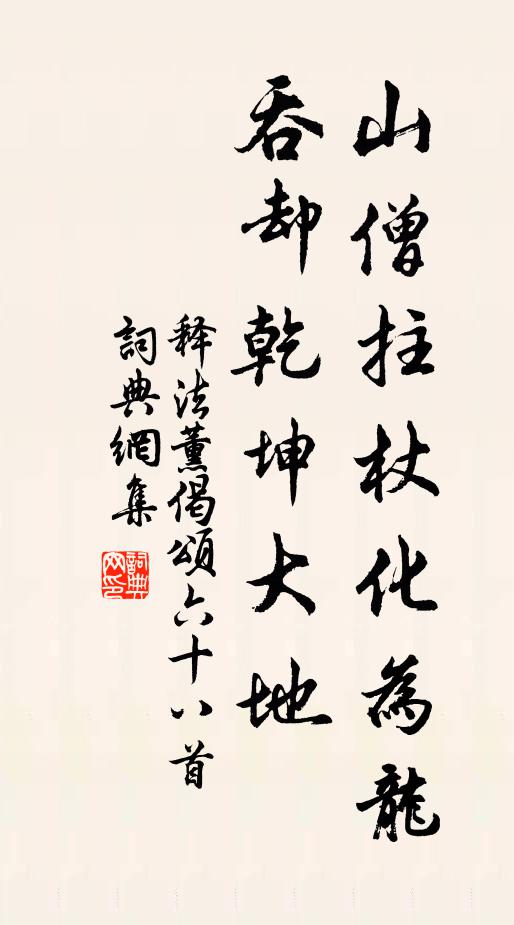 山僧拄杖化為龍
吞却乾坤大地
释法薰偈頌六十八首
詞典網集
詞典網印